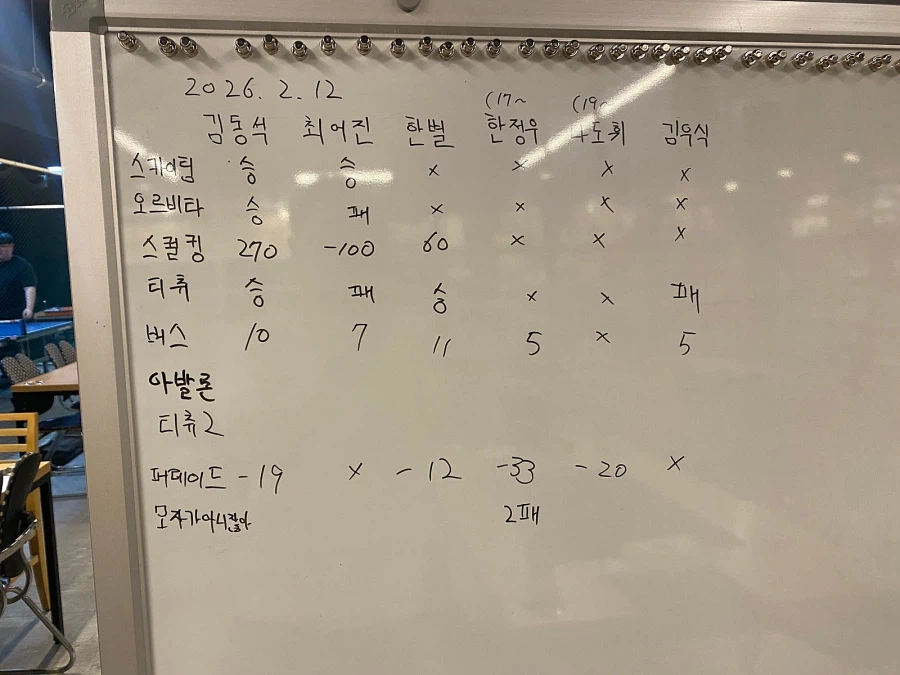 2026. 2. 12
(17~ (19~
김동식 최어진 한별 한정우 도휘 김우식
스키여팀 승 승 x x x x
오르비타 승 패 x x x x
스컬킹 270 -100 60 x x x
티츄 승 패 승 x x 패
버스 10 7 11 5 x 5
아발론
티츄2
퍼레이드 -19 x -12 -33 -20 x
모자가아니잖아 2패